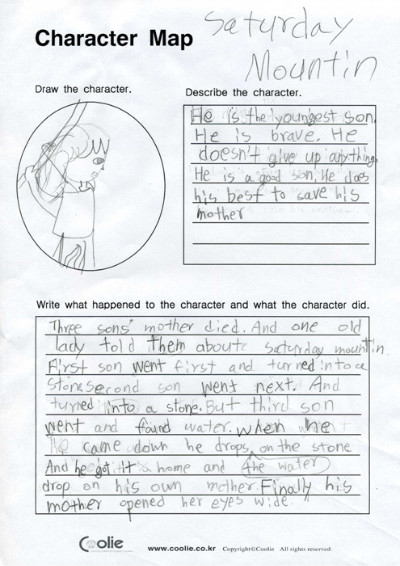 Character Map
Saturday
Mountin
Draw the character.
Describe the character.
He is the youngest son.
He is brave. He
doesn't give up anything.
He is a good son. He does
his best to save his
mother
Write what happened to the character and what the character did.
Three sons' mother died. And one old
lady told them about saturday mountin
First son went first and turned into a
stone second son went next. And
turned into a stone. But third son
went and found water. when he
came down he drops on the stone
And he got it home and the water
drop on his own mother. Finally his
mother opened her eyes wide.
Coolie
www.coolie.co.kr Copyright©Coolie All rights reserved.